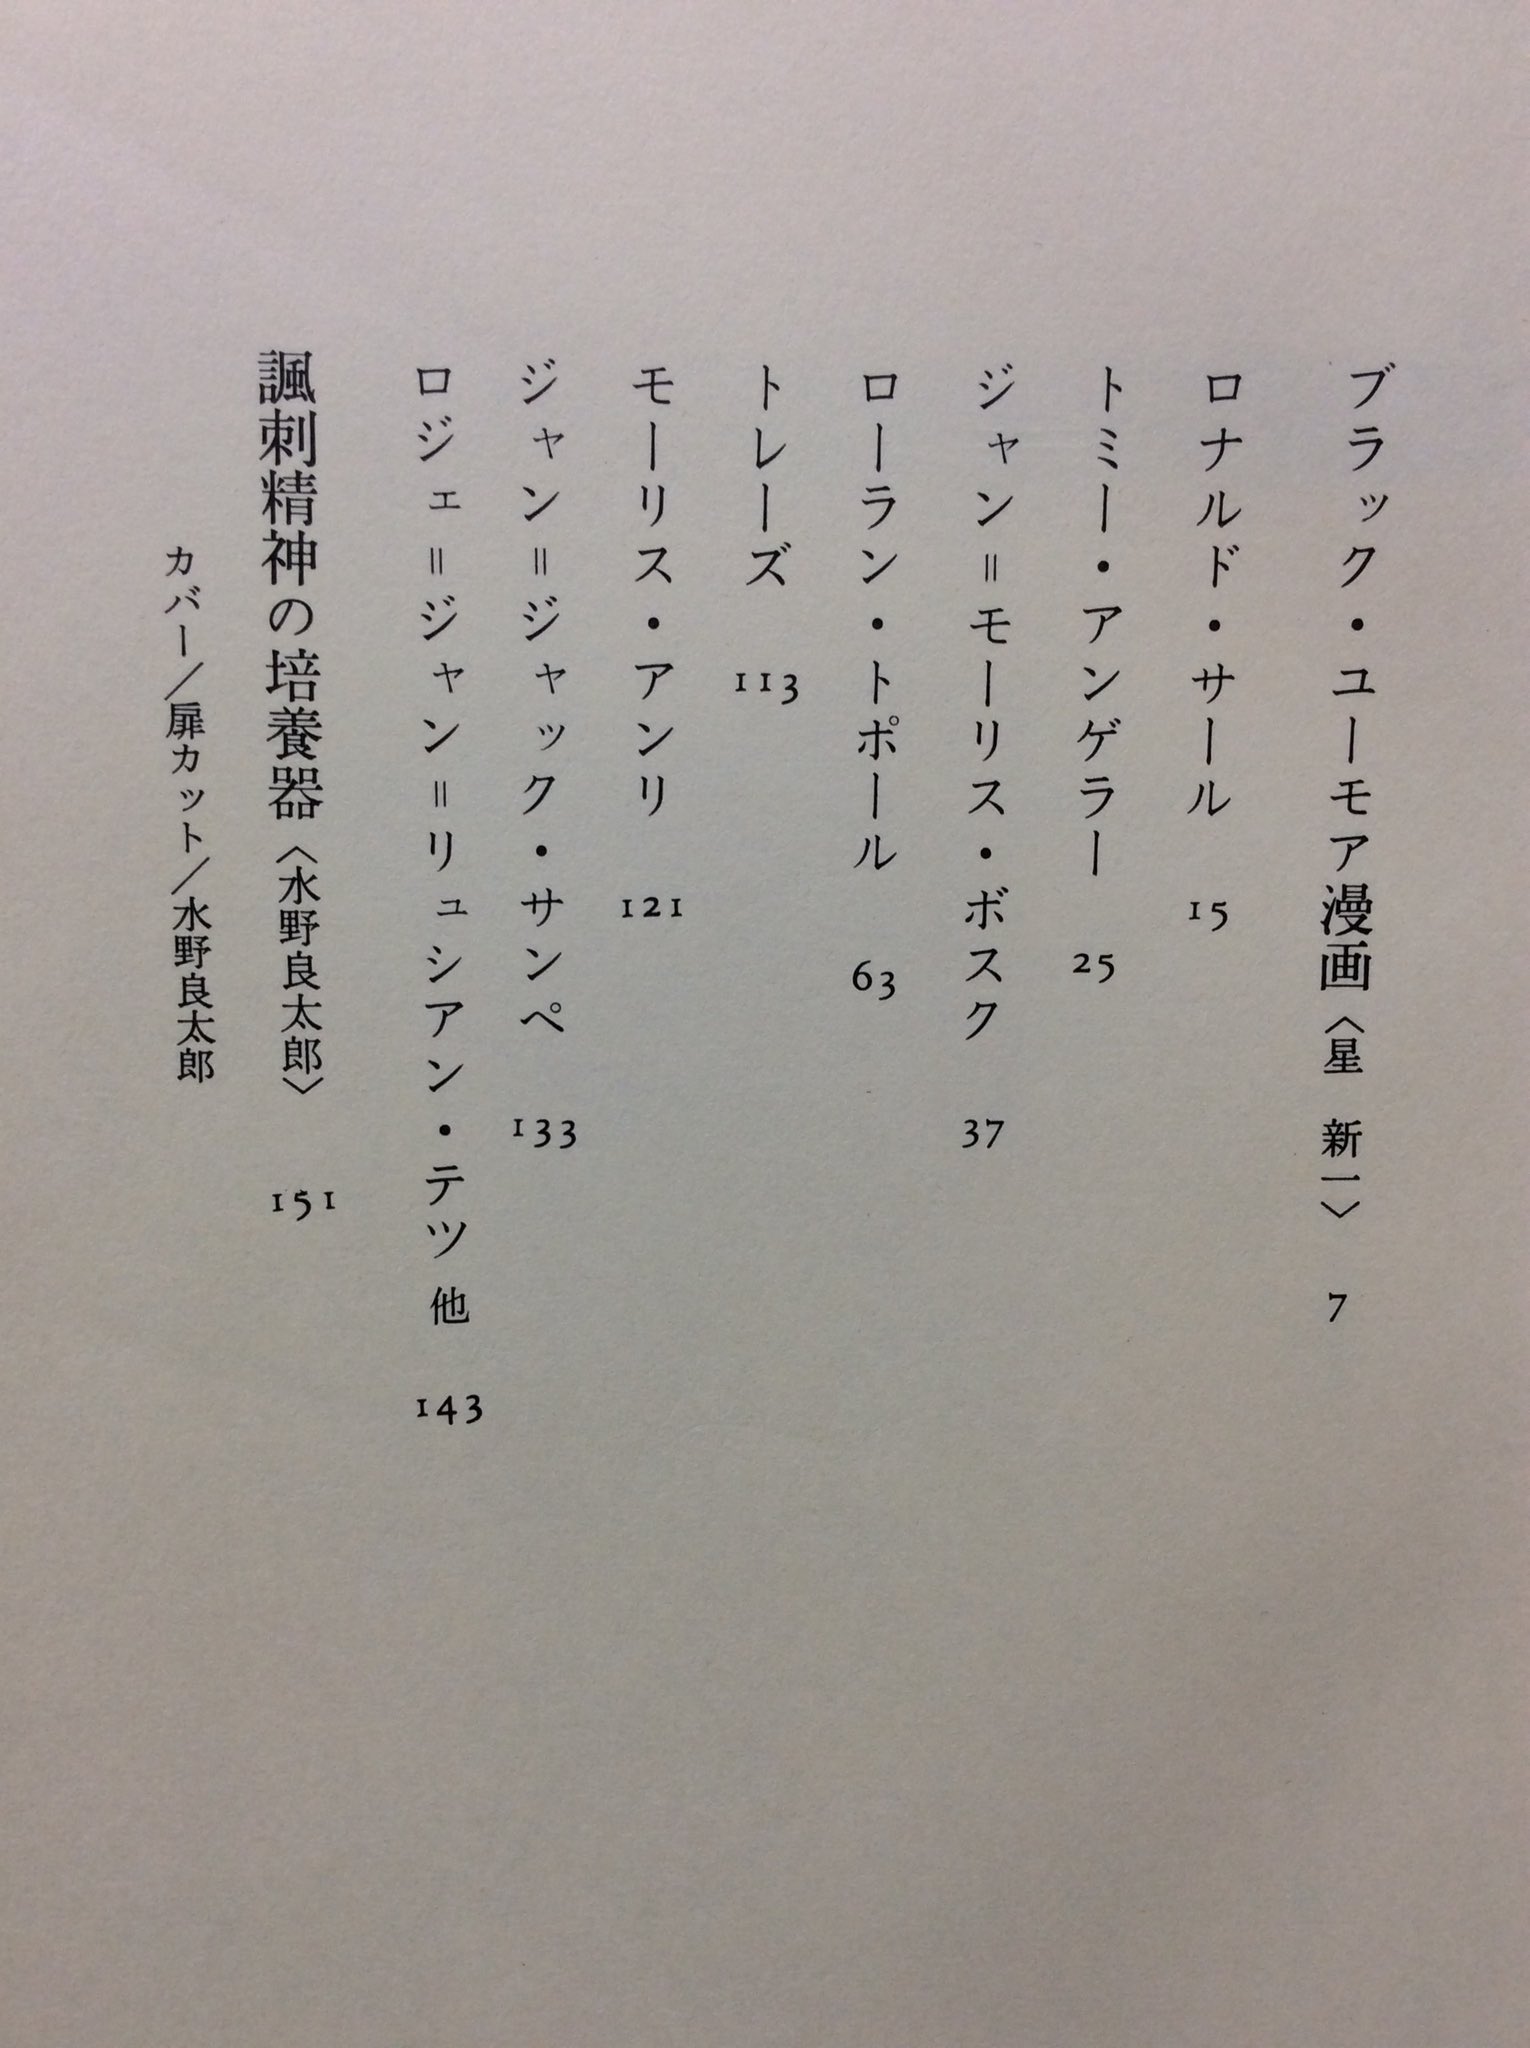 ブラック・ユーモア漫画〈星　新一〉 7
ロナルド・サール 15
トミー・アンゲラー 25
ジャン＝モーリス・ボスク 37
ローラン・トポール 63
トレーズ 113
モーリス・アンリ 121
ジャン＝ジャック・サンペ 133
ロジェ＝ジャン＝リュシアン・テツ 他 143
諷刺精神の培養器〈水野良太郎〉 151
カバー／扉カット／水野良太郎